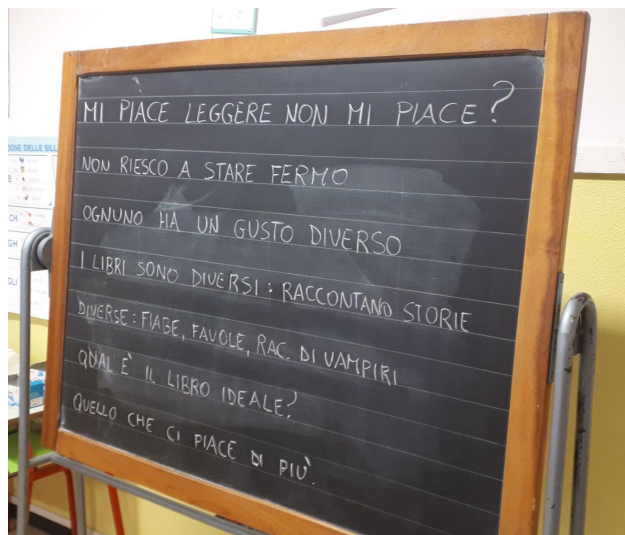 MI PIACE LEGGERE NON MI PIACE?
NON RIESCO A STARE FERMO
OGNUNO HA UN GUSTO DIVERSO
I LIBRI SONO DIVERSI: RACCONTANO STORIE
DIVERSE: FIABE, FAVOLE, RAC. DI VAMPIRI
QUAL È IL LIBRO IDEALE?
QUELLO CHE CI PIACE DI PIÙ.
DELLE SILL
CH
GH
GLI